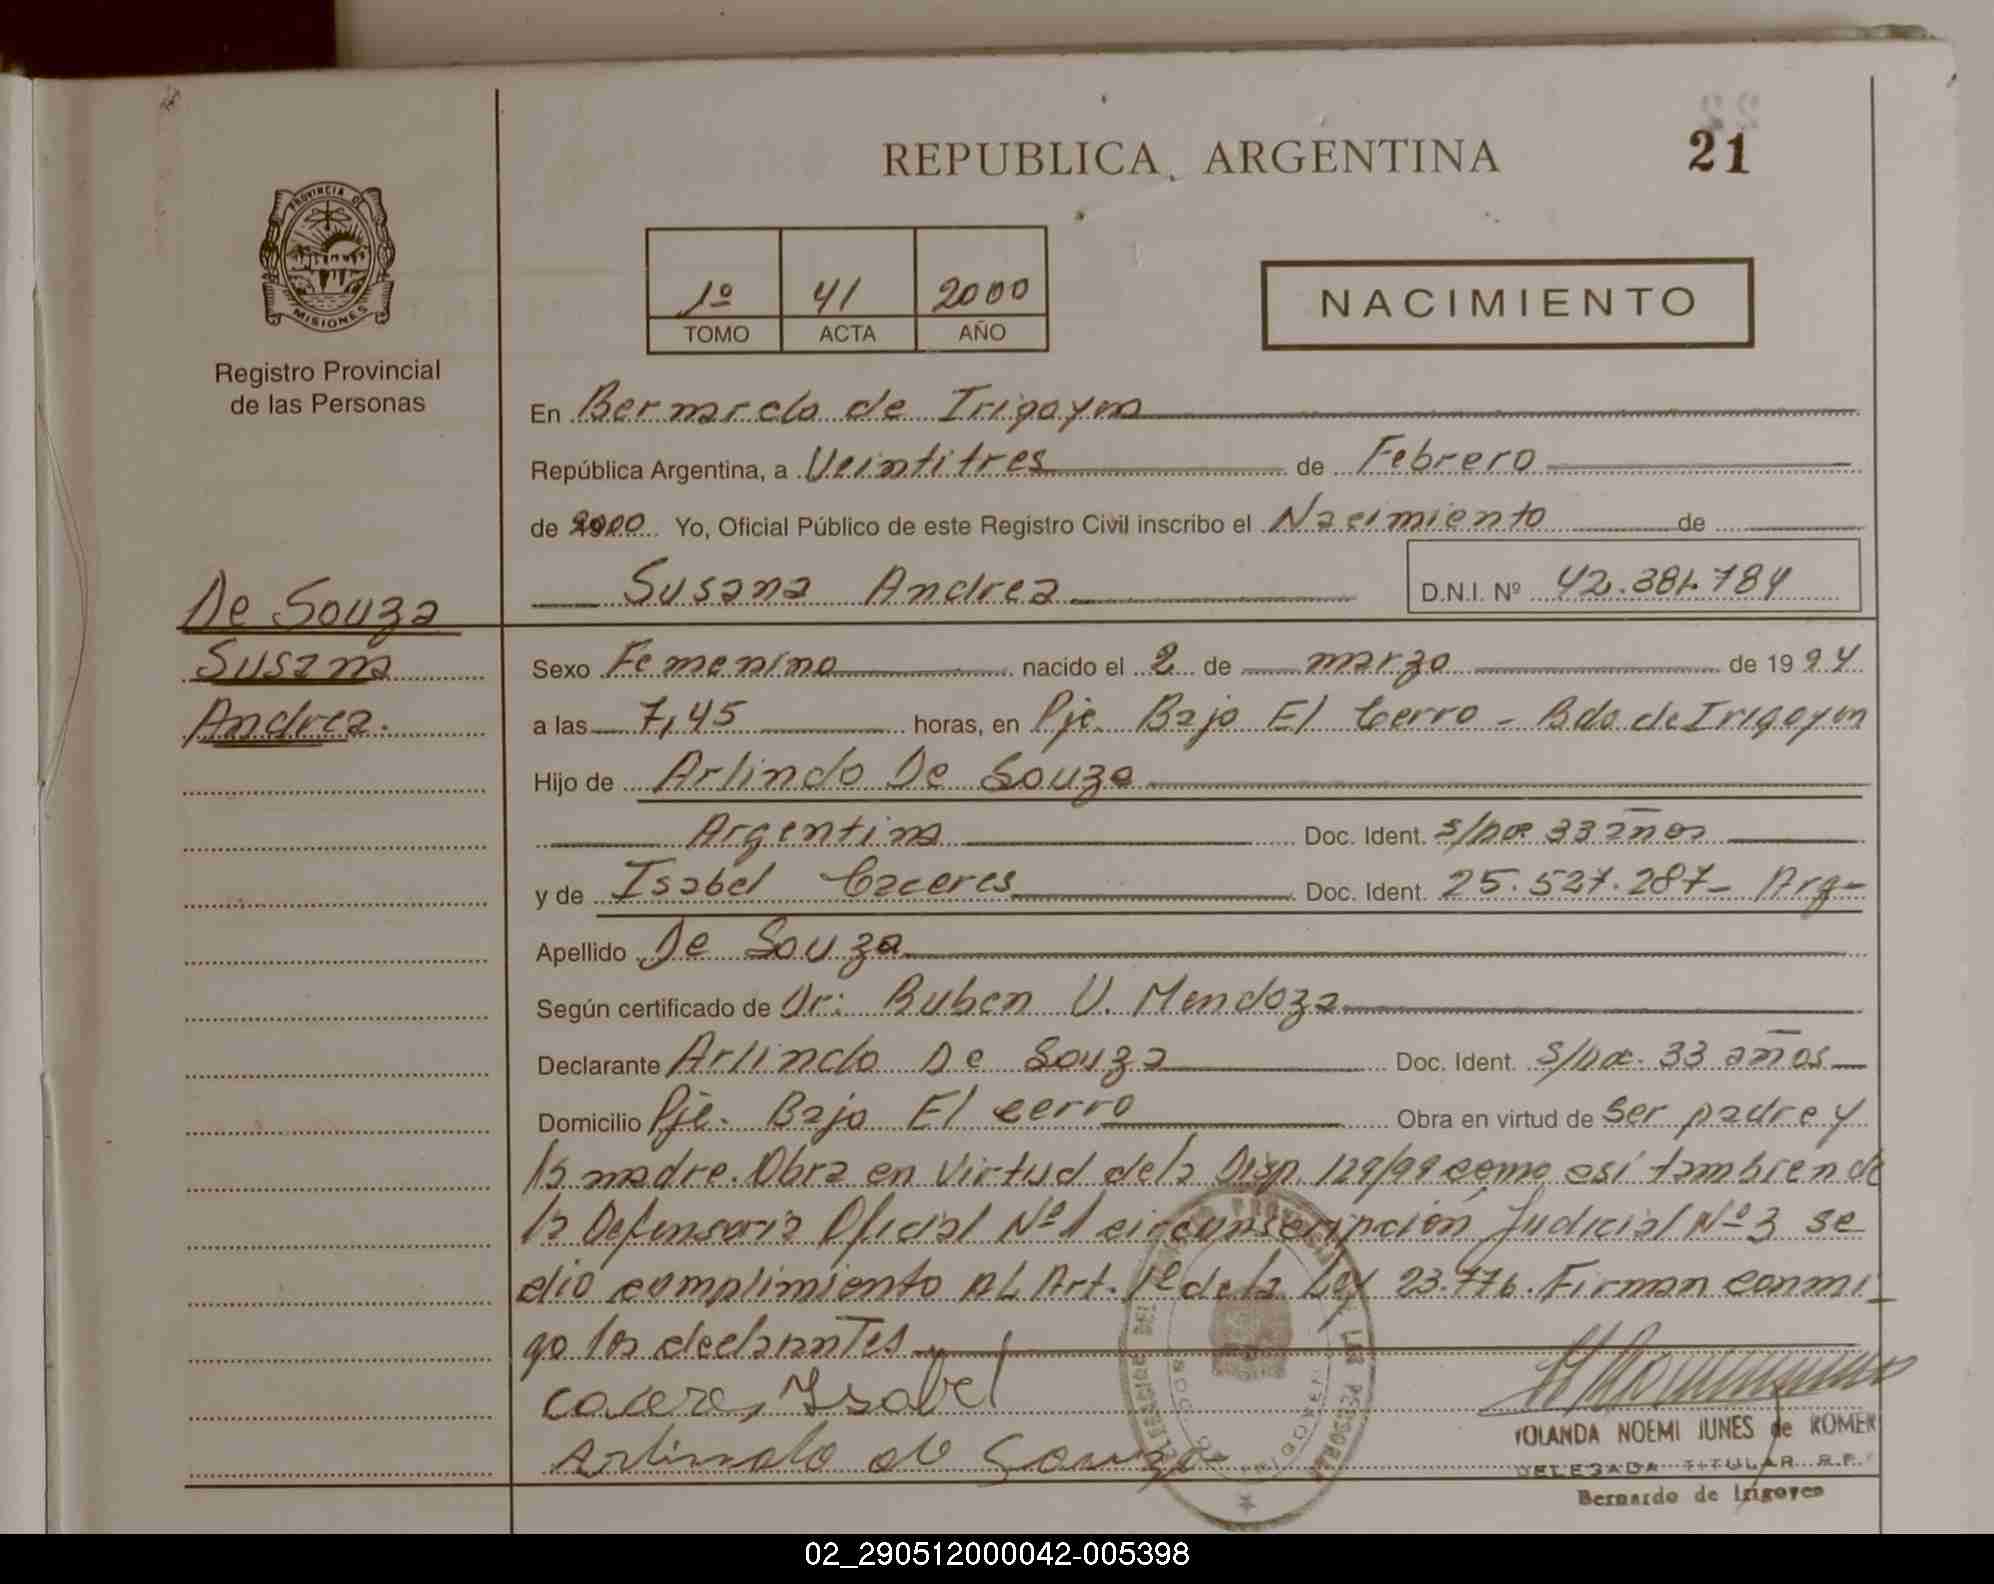 REPUBLICA ARGENTINA
21
PROVINCIA DE
MISIONES
Registro Provincial
de las Personas
1º 41 2000
TOMO ACTA AÑO
NACIMIENTO
En Bernardo de Irigoyen
República Argentina, a Veintitres de Febrero
de 2000 Yo, Oficial Público de este Registro Civil inscribo el Nacimiento de
Susana Andrea D.N.I. Nº 42.381.784
De Souza
Susana
Andrea.
Sexo Femenino nacido el 2 de marzo de 1994
a las 7,45 horas, en Pje. Bajo El Cerro - Bdo de Irigoyen
Hijo de Arlindo De Souza
Argentina Doc. Ident. s/no 33 años
y de Isabel Caceres Doc. Ident. 25.527.287- Arg-
Apellido De Souza
Según certificado de Dr: Ruben V. Mendoza
Declarante Arlindo De Souza Doc. Ident. s/no. 33 años
Domicilio Pje. Bajo El cerro Obra en virtud de Ser padre y
la madre. Obra en virtud de la Disp. 129/99 como asi tambien de
la Defensoria Oficial Nº 1 circunscripción Judicial Nº 3 se
dio cumplimiento al Art. 1º de la Ley 23.776. Firman conmi-
go los declarantes
Cacere, Ysabel
Arlindo de Souza
YOLANDA NOEMI JUNES de ROMER
DELEGADA TITULAR R.P.
Bernardo de Irigoyen
02_290512000042-005398